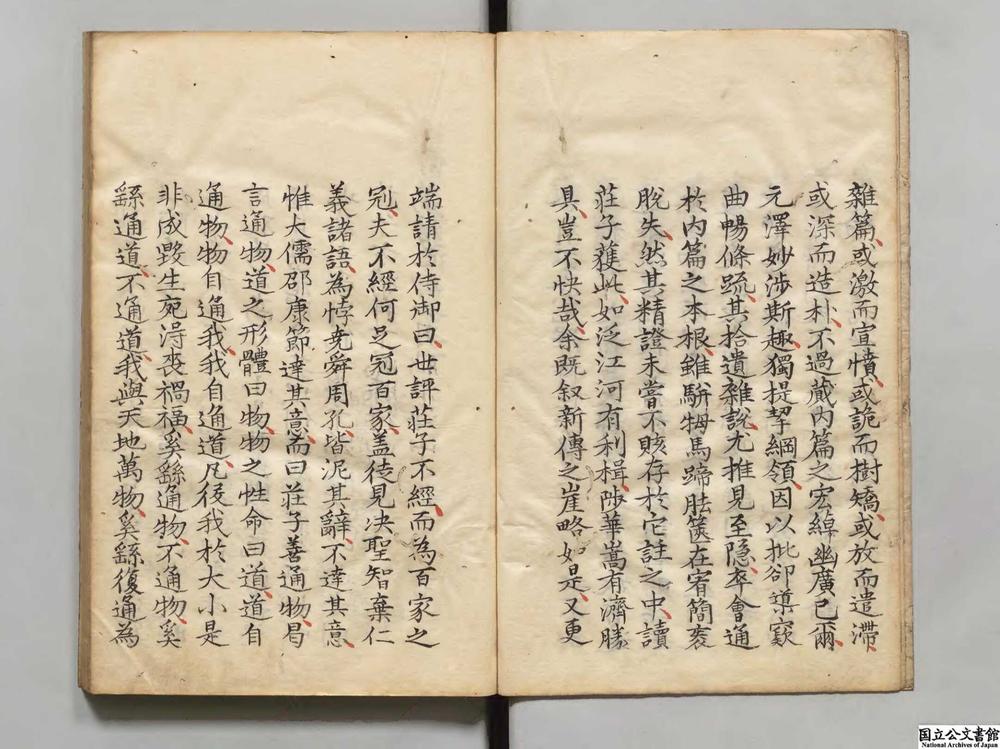 雜篇或激而宣憤或詭而樹矯或放而遣滯
或深而造朴不過蔵内篇之宏綽幽廣已爾
元澤妙渉斯趣獨提挈綱領因以批郤導窾
曲暢條疏其拾遺雜說尤推見至隠卒會通
於内篇之本根雖駢拇馬蹄胠篋在宥簡袠
脫失然其精證未嘗不賅存於它註之中讀
莊子蒦此如泛江河有利楫陟華嵩有濟勝
具豈不快哉余既叙新傳之崖略如是又更
端請於侍御曰世評莊子不經而為百家之
冠夫不經何足冠百家盖徒見决聖智棄仁
義諸語為悖尭舜周孔皆泥其辭不達其意
惟大儒邵康節達其意而曰莊子善通物局
言通物道之形體曰物物之性命曰道道自
通物物自通我我自通道凡役我於大小是
非成毀生宛淂喪禍福奚繇通物不通物奚
繇通道不通道我與天地萬物奚繇復通為
国立公文書館
National Archives of Japan